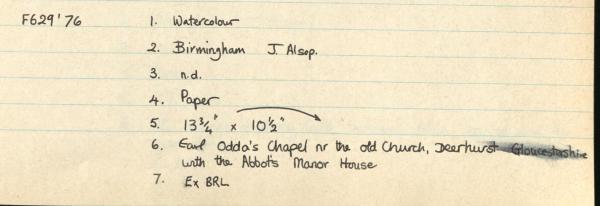 F629'76 1. Watercolour
2. Birmingham J. Alsop.
3. n.d.
4. Paper
5. 13 3/4" x 10 1/2"
6. Earl Odda's Chapel nr the old Church, Deerhurst Gloucestershire
with the Abbot's Manor House
7. Ex BRL